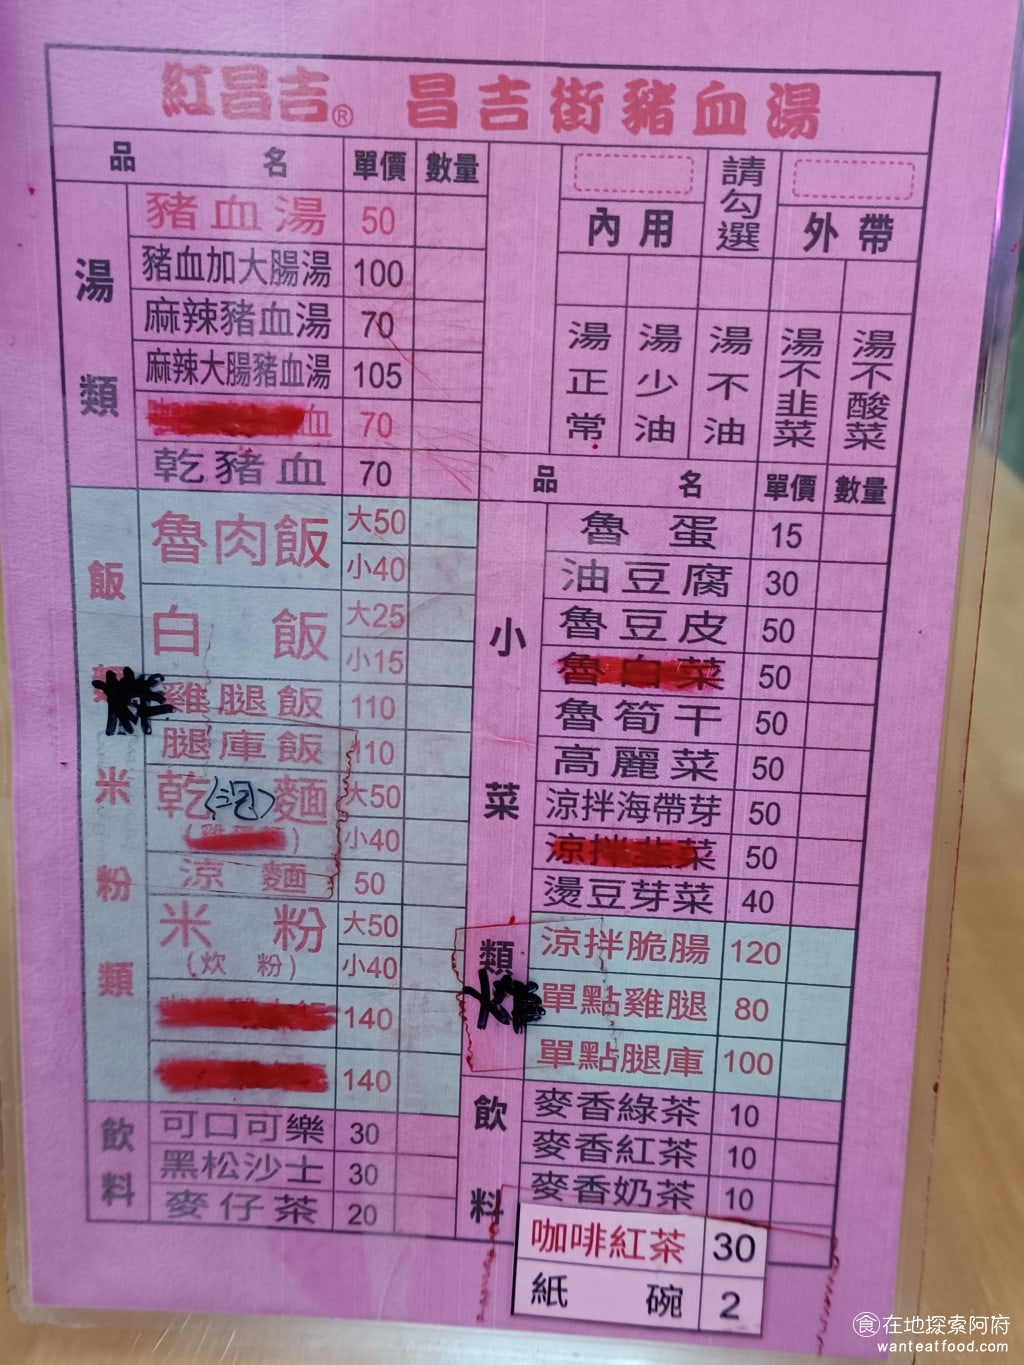 紅昌吉® 昌吉街豬血湯
品 名 單價 數量
湯類
豬血湯 50
豬血加大腸湯 100
麻辣豬血湯 70
麻辣大腸豬血湯 105
血 70
乾豬血 70
飯
米粉類
魯肉飯 大50
小40
白飯 大25
小15
炸雞腿飯 110
腿庫飯 110
乾(泡)麵 大50
小40
涼麵 50
米粉 大50
(炊粉) 小40
140
140
飲料
可口可樂 30
黑松沙士 30
麥仔茶 20
請勾選
內用 外帶
湯正常
湯少油
湯不油
湯不韭菜
湯不酸菜
品 名 單價 數量
小菜類
魯蛋 15
油豆腐 30
魯豆皮 50
魯白菜 50
魯筍干 50
高麗菜 50
涼拌海帶芽 50
涼拌韭菜 50
燙豆芽菜 40
涼拌脆腸 120
單點雞腿 80
單點腿庫 100
飲料
麥香綠茶 10
麥香紅茶 10
麥香奶茶 10
咖啡紅茶 30
紙碗 2
食在地探索阿府
wanteatfood.com